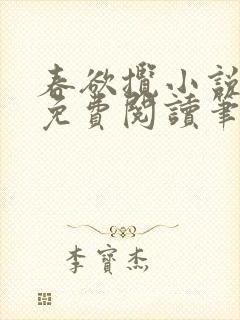 春欲攬小說
免費閱讀筆
李寶杰